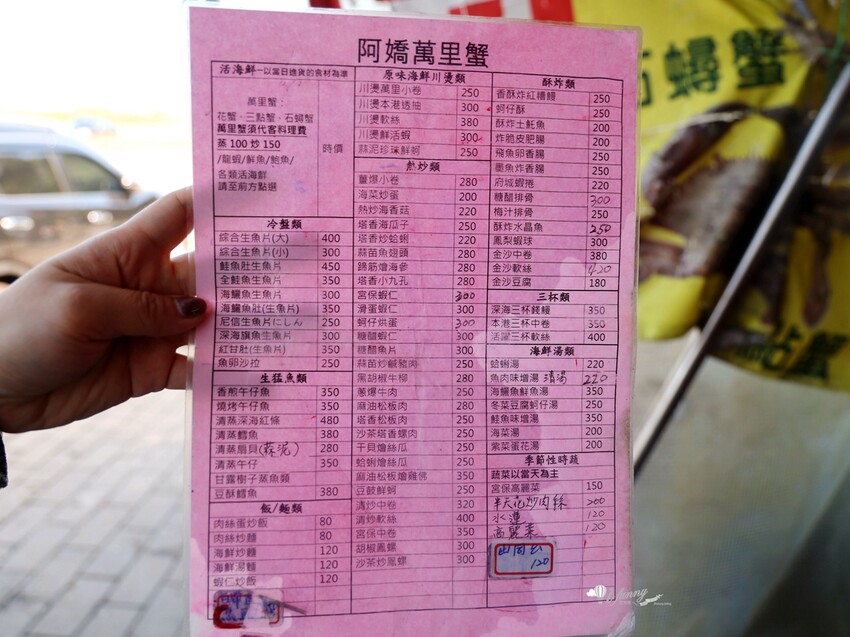 阿嬌萬里蟹
活海鮮-以當日進貨的食材為準
萬里蟹：
花蟹、三點蟹、石蟳蟹
萬里蟹須代客料理費
蒸 100 炒 150
/龍蝦/鮮魚/鮑魚/
各類活海鮮
請至前方點選
時價
冷盤類
綜合生魚片(大) 400
綜合生魚片(小) 300
鮭魚肚生魚片 450
全鮭生魚片 350
海鱺生魚片 300
海鱺魚肚(生魚片) 350
尼信生魚片にしん 250
深海旗魚生魚片 300
紅甘肚(生魚片) 350
魚卵沙拉 250
生猛魚類
香煎午仔魚 350
燒烤午仔魚 350
清蒸深海紅條 480
清蒸鱈魚 380
清蒸扇貝(蒜泥) 280
清蒸午仔 350
甘露樹子蒸魚類
豆酥鱈魚 380
飯/麵類
肉絲蛋炒飯 80
肉絲炒麵 80
海鮮炒麵 120
海鮮湯麵 120
蝦仁炒飯 120
原味海鮮川燙類
川燙萬里小卷 250
川燙本港透抽 300
川燙軟絲 380
川燙鮮活蝦 300
蒜泥珍珠鮮蚵 250
熱炒類
薑爆小卷 280
海菜炒蛋 200
熱炒海香菇 220
塔香海瓜子 250
塔香炒蛤蜊 220
蒜苗魚翅頭 280
蹄筋燴海參 280
塔香小九孔 280
宮保蝦仁 300
滑蛋蝦仁 300
蚵仔烘蛋 300
糖醋蝦仁 300
糖醋魚片 300
蒜苗炒鹹豬肉 250
黑胡椒牛柳 280
蔥爆牛肉 250
麻油松板肉 280
塔香松板肉 280
沙茶塔香螺肉 250
干貝燴絲瓜 250
蛤蜊燴絲瓜 250
麻油松板燴雞佛 350
豆鼓鮮蚵 250
清炒中卷 320
清炒軟絲 400
宮保中卷 350
胡椒鳳螺 300
沙茶炒鳳螺 300
酥炸類
香酥炸紅糟鰻 250
蚵仔酥 250
酥炸土魠魚 200
炸脆皮肥腸 200
飛魚卵香腸 250
墨魚炸香腸 250
府城蝦捲 220
糖醋排骨 300
梅汁排骨 250
酥炸水晶魚 250
鳳梨蝦球 300
金沙中卷 380
金沙軟絲 420
金沙豆腐 180
三杯類
深海三杯錢鰻 350
本港三杯中卷 350
活躍三杯軟絲 400
海鮮湯類
蛤蜊湯 220
魚肉味增湯 清湯 220
海鱺魚鮮魚湯 350
冬菜豆腐蚵仔湯 250
鮭魚味增湯 350
海菜湯 200
紫菜蛋花湯 200
季節性時蔬
蔬菜以當天為主
宮保高麗菜 150
半天花炒肉絲 200
水蓮 120
高麗菜 120
山茼公 120
蟳蟹